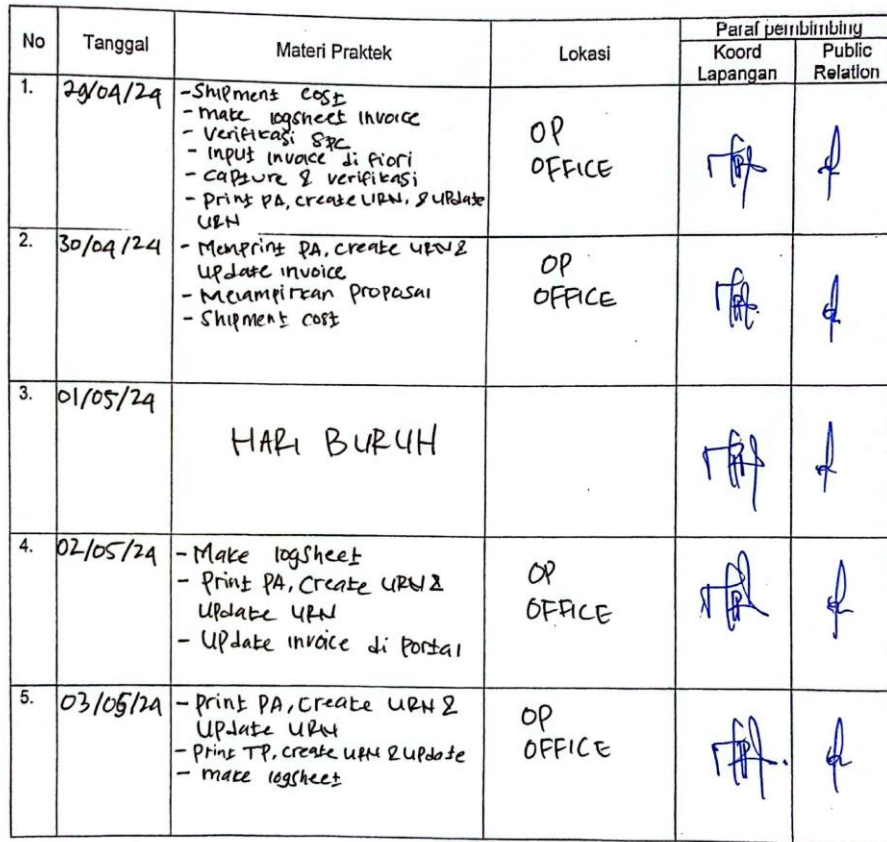 No Tanggal Materi Praktek Lokasi Paraf pembimbing
Koord Lapangan Public Relation
1. 29/04/24
- Shipment cost
- Make logsheet invoice
- Verifikasi SPC
- Input invoice di Fiori
- Capture & verifikasi
- Print PA, create URN, & update
URN
OP
OFFICE
2. 30/04/24
- Memprint PA, create URN &
update invoice
- Melampirkan Proposal
- Shipment cost
OP
OFFICE
3. 01/05/24
HARI BURUH
4. 02/05/24
- Make logsheet
- Print PA, Create URN &
Update URN
- Update invoice di Portal
OP
OFFICE
5. 03/05/24
- Print PA, Create URN &
Update URN
- Print TP, create URN & update
- make logsheet
OP
OFFICE